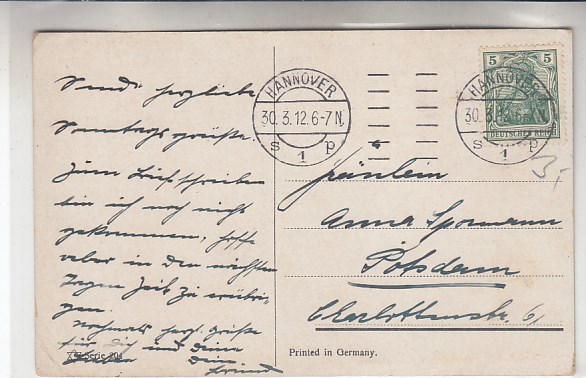 Sende herzliche
Sonntagsgrüße.
Zum Briefschreiben
bin ich noch nicht
gekommen, hoffe
aber in den nächsten
Tagen Zeit zu erübri-
gen.
Nochmals herzl. Grüße
für Dich und Deine
Dein
Freund
Serie 204
HANNOVER
30.3.12.6-7N.
s 1 p
5 5
DEUTSCHES REICH
HANNOVER
30.3.12 N.
s 1 p
3,-
Fräulein
Anna Spormann
Potsdam
Charlottenstr. 6/
Printed in Germany.